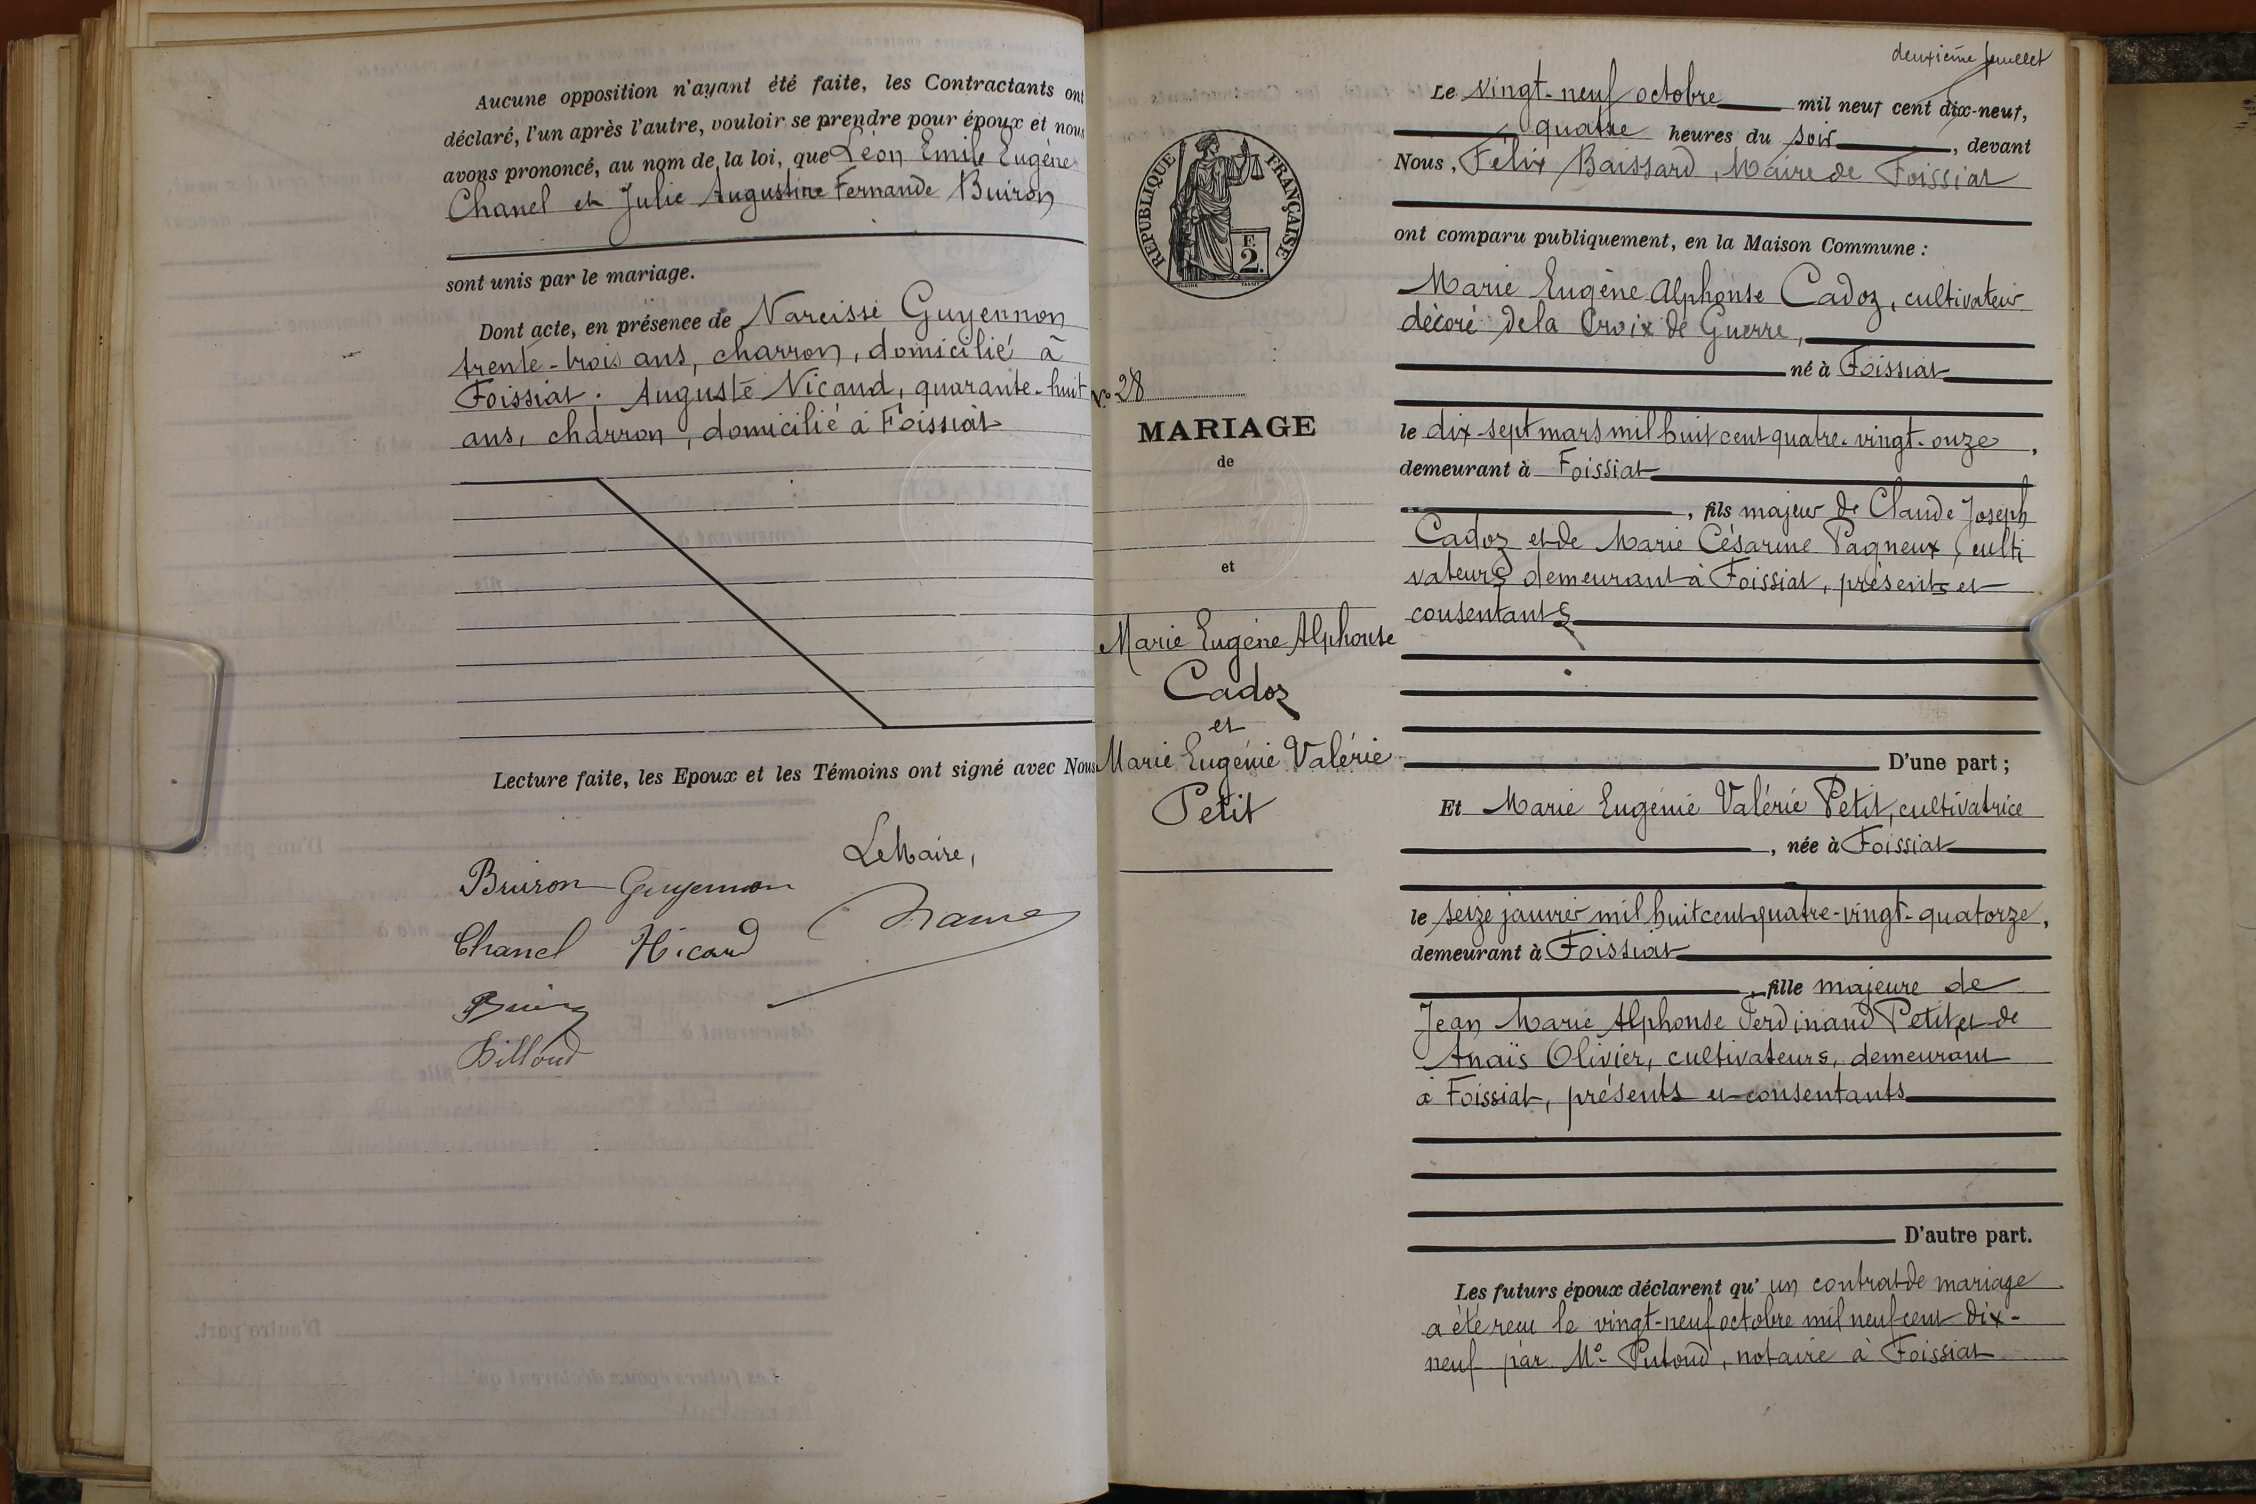 Aucune opposition n'ayant été faite, les Contractants ont
déclaré, l'un après l'autre, vouloir se prendre pour époux et nous
avons prononcé, au nom de la loi, que Léon Emile Eugène
Chanel et Julie Augustine Fernande Buiron
sont unis par le mariage.
Dont acte, en présence de Narcisse Guyennon
trente-trois ans, charron, domicilié à
Foissiat; Auguste Nicaud, quarante-huit
ans, charron, domicilié à Foissiat
Lecture faite, les Epoux et les Témoins ont signé avec Nous
Le Maire,
Buiron Guyennon
Chanel Nicaud
Billoud
REPUBLIQUE FRANÇAISE
F.
2.
No 28
MARIAGE
de
et
Marie Eugène Alphonse
Cadoz
et
Marie Eugénie Valérie
Petit
deuxième feuillet
Le vingt-neuf octobre mil neuf cent dix-neuf,
quatre heures du soir, devant
Nous, Félix Baissard, Maire de Foissiat
ont comparu publiquement, en la Maison Commune :
Marie Eugène Alphonse Cadoz, cultivateur
décoré de la Croix de Guerre,
né à Foissiat
le dix-sept mars mil huit cent quatre-vingt-onze,
demeurant à Foissiat
, fils majeur de Claude Joseph
Cadoz et de Marie Césarine Pagneux, culti
vateurs demeurant à Foissiat, présents et
consentants
D'une part ;
Et Marie Eugénie Valérie Petit, cultivatrice
, née à Foissiat
le seize janvier mil huit cent quatre-vingt-quatorze,
demeurant à Foissiat
, fille majeure de
Jean Marie Alphonse Ferdinand Petit et de
Anaïs Olivier, cultivateurs, demeurant
à Foissiat, présents et consentants
D'autre part.
Les futurs époux déclarent qu' un contrat de mariage
a été recu le vingt-neuf octobre mil neuf cent dix-
neuf par Me Putoud, notaire à Foissiat